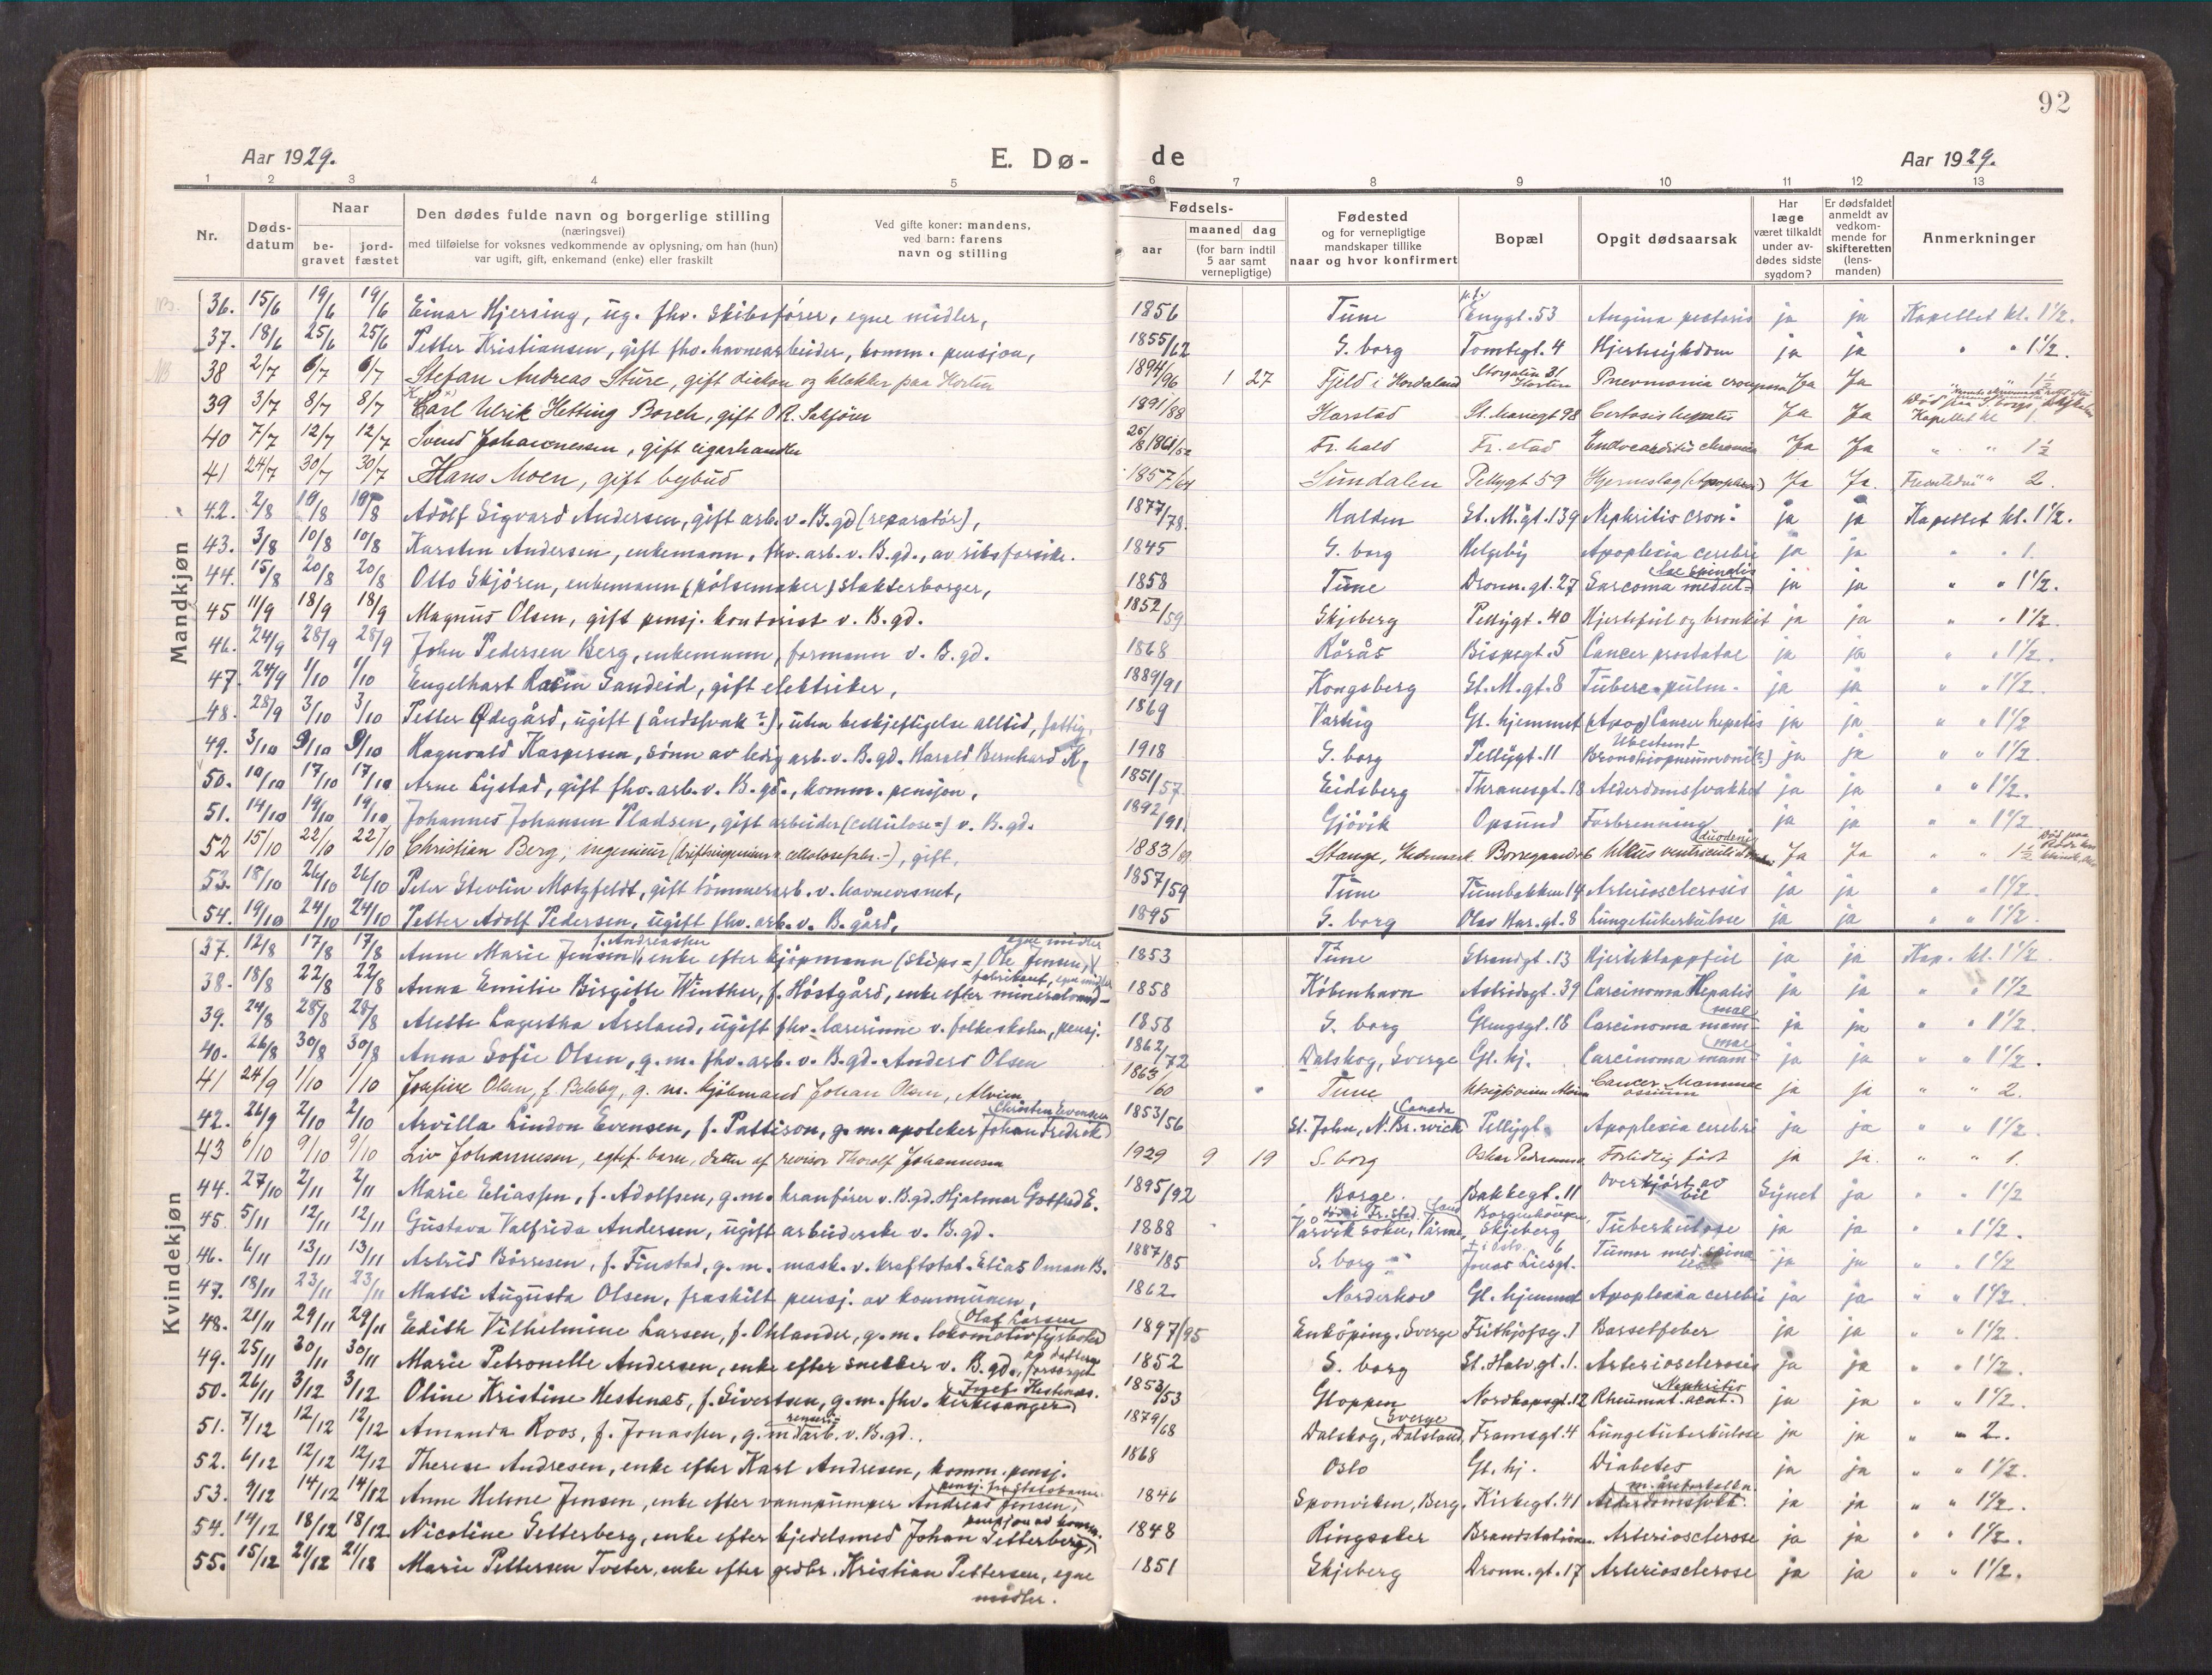 92
Aar 1929. E. Dø- de Aar 1929.
1 2 3 4 5 6 7 8 9 10 11 12 13
Nr. Døds-datum Naar be-gravet jord-fæstet Den dødes fulde navn og borgerlige stilling (næringsvei) med tilføielse for voksnes vedkommende av oplysning, om han (hun) var ugift, gift, enkemand (enke) eller fraskilt Ved gifte koner: mandens, ved barn: farens navn og stilling Fødsels- aar maaned dag (for barn indtil 5 aar samt vernepligtige) Fødested og for vernepligtige mandskaper tillike naar og hvor konfirmert Bopæl Opgit dødsaarsak Har læge været tilkaldt under av-dødes sidste sygdom? Er dødsfaldet anmeldt av vedkom-mende for skifteretten (lens-manden) Anmerkninger
Mandkjøn
NB. 36. 15/6 19/6 19/6 Einar Hjersing, ug. fhv. skibsfører, egne midler, 1856 Tune Engygt. 53 Angina pectoris ja ja Kapellet kl. 1½.
37. 18/6 25/6 25/6 Petter Kristiansen, gift fhv. havnearbeider, komm. pensjon, 1855/62 S. borg Tomtegt. 4 Hjertesykdom ja ja " " 1½.
NB 38 2/7 6/7 6/7 Stefan Andreas Sture, gift diakon og klokker paa Horten 1894/96 1 27 Fjeld i Hordaland Storgaten 31 Horten Pneumonia crouposa Ja Ja 1½
39 3/7 8/7 8/7 Carl Ulrik Hetting Borch, gift O.R. Sakfører 1891/88 Harstad St. Mariegt 98 Ja Ja Kapellet kl 1.
40 7/7 12/7 12/7 Svend Johannessen, gift cigarhandler Fr. hald Fr. stad Endocarditis chronica Ja Ja " " 1½
41 24/7 30/7 30/7 Hans Moen, gift bybud 1857/64 Sundalen Pellygt 59 Hjerneslag (Apoplexi) Ja Ja. " 2.
42. 2/8 10/8 10/8 Adolf Sigvard Andersen, gift arb. v. B.gd (reparatør), 1877/78. Halden St. M.gt. 139 Nephritis cron. ja ja Kapellet kl. 1½.
43. 3/8 10/8 10/8 Karsten Andersen, enkemann, fhv. arb. v. B.gd., av riksforsikr. 1845 S. borg Helgeby Apoplexia cerebri ja ja " " 1.
44. 15/8 20/8 20/8 Otto Skjören, enkemann (pølsemaker) slakterborger, 1858 Tune Dronn. gt. 27 Sarcoma medullae spinalis ja ja " " 1½.
45 11/9 18/9 18/9 Magnus Olsen, gift pensj. kontorist v. B.gd. 1852/59 Skjeberg Pellygt. 40 Hjertefeil og bronkit ja ja " " 1½.
46. 24/9 28/9 28/9 John Pedersen Berg, enkemann, formann v. B.gd. 1868 Röros Bispegt. 5 Cancer prostatae ja ja " " 1½.
47. 24/9 1/10 1/10 Engelhart Sandeid, gift elektriker, 1889/91 Kongsberg St. M. gt. 8 Tuberc. pulm. ja ja " " 1½
48. 28/9 3/10 3/10 Petter Ødegård, ugift (åndssvak?), uten beskjeftigelse alltid, fattig, 1869 Varteig Gl. hjemmet Cancer hepatis ja ja " " 1½
49. 3/10 9/10 9/10 Ragnvald Kaspersen, sønn av ledig arb. v. B.gd. Harald Bernhard K, 1918 S. borg Pellygt. 11 Ubestemt Bronchiopneumoni(?) ja ja " " 1½
50. 10/10 17/10 17/10 Arne Lystad, gift fhv. arb. v. B. gd., komm. pensjon, 1851/57. Eidsberg Thranesgt. 18 Alderdomssvakhet ja ja " " 1½.
51. 14/10 19/10 19/10 Johannes Johansen Pladsen, gift arbeider (cellulose-) v. B.gd. 1892/91. Gjövik Opsund Forbrenning ja ja " " 1½
52 15/10 22/10 22/10 Christian Berg, ingeniør (driftsingeniør v. cellulosefabr.-), gift, 1883/81 Stange, Hedmark Borregaard Ulcus ventriculi duodeni Ja Ja " " 1½
53. 18/10 26/10 26/10 Peter Stevlin Motzfeldt, gift tömmerarb. v. havnevesnet, 1857/59 Tune Tunebakken 14 Arteriosclerosis ja ja " " 1½.
54. 19/10 24/10 24/10 Petter Adolf Pedersen, ugift fhv. arb. v. B. gård, 1895 S. borg Olav Har. gt. 8 Lungetuberkulose ja ja " " 1½.
Kvindekjøn
37. 12/8 17/8 17/8 Anne Marie Jensen f. Andreassen, enke efter kjöpmann (skips-) Ole Jensen, egne midler 1853 Tune Strandgt. 13 Hjerteklappfeil ja ja Kap. kl. 1½
38. 18/8 22/8 22/8 Anna Emilie Birgitte Winther, f. Höstgård, enke efter mineralvand-fabrikant, egne midler 1858 Köbenhavn Astridsgt. 39 Carcinoma Hepatis ja ja " " 1½
39. 24/8 28/8 28/8 Alette Lagertha Aasland, ugift fhv. lærerinne v. folkeskolen, pensj. 1858 S. borg Glengsgt. 18 Carcinoma mammae ja ja " " 1½.
40. 26/8 30/8 30/8 Anna Sofie Olsen, g.m. fhv. arb. v. B.gd. Anders Olsen 1862/72 Dalskog, Sverge Gl. hj. Carcinoma mammae ja ja " " 1½.
41 24/9 1/10 1/10 Josefine Olsen, f. Belsby, g. m. kjöbmand Johan Olsen, Alvim 1863/60 Tune Cancer Mammae ossium ja ja " " 2.
42. 26/9 2/10 2/10 Arvilla Lindon Evensen, f. Pattison, g.m. apoteker Johan Fredrik Christen Evensen 1853/56 St. John, N. Br. wick Canada Pellygt. Apoplexia cerebri ja ja " " 1½.
43 6/10 9/10 9/10 Liv Johannesen, egtef. barn, datter af revisor Thorolf Johannesen 1929 9 19 S. borg Oskar Pedersensg Förtidlig født ja ja. " " 1.
44. 27/10 2/11 2/11 Marie Eliassen, f. Adolfsen, g.m. kranförer v. B.gd. Hjalmar Gotfred E. 1895/92 Borge. Bakkegt. 11 Overkjört av bil Synet ja " " 1½
45. 5/11 12/11 12/11 Gustava Valfrida Andersen, ugift arbeiderske v. B.gd. 1888 Skjeberg Tuberkulose ja ja " " 1½.
46. 6/11 13/11 13/11 Astrid Börresen, f. Finstad, g.m. mask. v. kraftstat. Elias Oman B. 1887/85 S. borg Jonas Liesgt. 6 Tumor med. spina ja ja " " 1½
47. 18/11 23/11 23/11 Matti Augusta Olsen, fraskilt pensj. av kommunen, 1862 Norderhov Gl. hjemmet Apoplexia cerebri ja ja " " 1½.
48. 21/11 29/11 29/11 Edith Vilhelmine Larsen, f. Ohlander, g.m. lokomotivfyrböter Olaf Larsen 1897/95 Enköping. Sverge Frithjofsg. 1 Barselfeber ja ja " " 1½.
49. 25/11 30/11 30/11 Marie Petronelle Andersen, enke efter snekker v. B.gd., forsörget av döttrene 1852 S. borg St. Halv. gt. 1. Arteriosclerosis ja ja " " 1½.
50. 26/11 3/12 3/12 Oline Kristine Hestenes, f. Sivertsen, g.m. fhv. kirkesanger Josef Hestenes. 1853/53 Gloppen Nordkapsgt. 12 Rheumat. acut. Nephritis ja ja " " 1½.
51. 7/12 12/12 12/12 Amanda Roos, f. Jonassen, g.m. renseriarb. v. B.gd.. 1879/68 Dalskog, Dalsland, Sverge Framsgt. 4 Lungetuberkulose ja ja " " 2.
52. 6/12 12/12 12/12 Therese Andresen, enke efter Karl Andresen, komm. pensj. 1868 Oslo Gl. hj. Diabetes ja ja " " 1½.
53. 9/12 14/12 14/12 Anne Helene Jensen, enke efter vannpumper Andreas Jensen, pensj. fra statsbaner 1846 Sponviken, Berg. Kirkegt. 41 m. åreforkalkn. ja ja " " 1½.
54. 14/12 18/12 18/12 Nicoline Setterberg, enke efter kjedelsmed Johan Setterberg, pensjon av komm. 1848 Ringsaker Brandstationen Arteriosclerose ja ja " " 1½.
55. 15/12 21/12 21/12 Marie Pettersen Toster, enke efter grdbr. Kristian Pettersen, egne midler. 1851 Skjeberg Dronn. gt. 17 Arteriosclerose ja ja " " 1½.